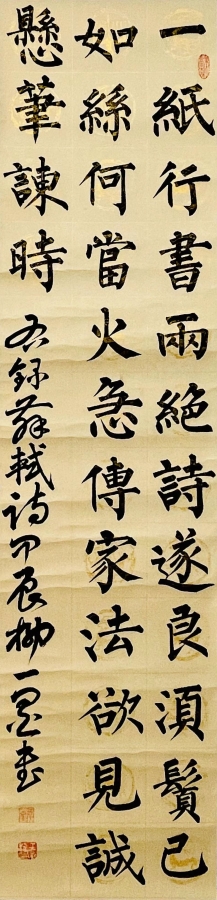 一紙行書兩絶詩遂良須鬢已
如絲何當火急傳家法欲見誠
懸筆諫時
右録蘇軾詩甲辰柳一墨書